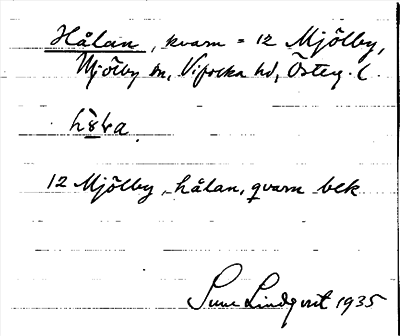 Hålan, kvarn = 12 Mjölby,
Mjölby sn, Vifolka hd, Österg. l.
12 Mjölby, hålan, qvarn bek
Sune Lindqvist 1935